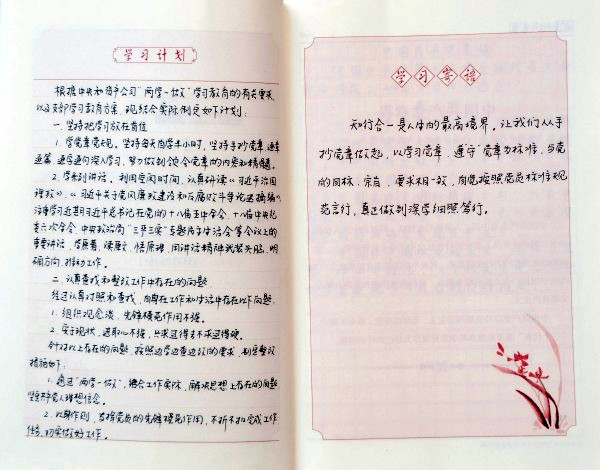 学习计划
根据中央和省公司“两学一做”学习教育的有关要求,
以及支部学习教育方案,现结合实际制定如下计划:
一、坚持把学习放在首位
1.学党章党规,坚持每天自学半小时,坚持手抄党章,逐章
逐篇、逐句逐句深入学习,努力做到领会党章的内容和精髓。
2.学系列讲话,利用空闲时间,认真研读《习近平谈治国
理政》、《习近平关于党风廉政建设和反腐败斗争论述摘编》,
注重学习近期习近平总书记在党的十八届五中全会、十八届中央纪
委六次全会、中央政治局“三严三实”专题民主生活会等会议上的
重要讲话,学原著、读原文、悟原理,用讲话精神武装头脑,明
确方向,推动工作。
二、认真查找和整改工作中存在的问题
经过认真对照和查找,自身在工作和生活中存在以下问题:
1.组织观念淡,先锋模范作用不强。
2.安于现状,进取心不强,只求过得去不求过得硬。
针对以上存在的问题,按照边学边查边改的要求,制定整改
措施如下:
1.通过“两学一做”,结合工作实际,解决思想上存在的问题,
坚定共产党人理想信念。
2.以身作则,发挥党员的先锋模范作用,不折不扣完成工作
任务,切实做好工作。
学习寄语
知行合一是人生的最高境界,让我们从手
抄党章做起,以学习党章,遵守党章为标准,与党
的目标、宗旨、要求相一致,自觉按照党员标准规
范言行,真正做到深学细照笃行。